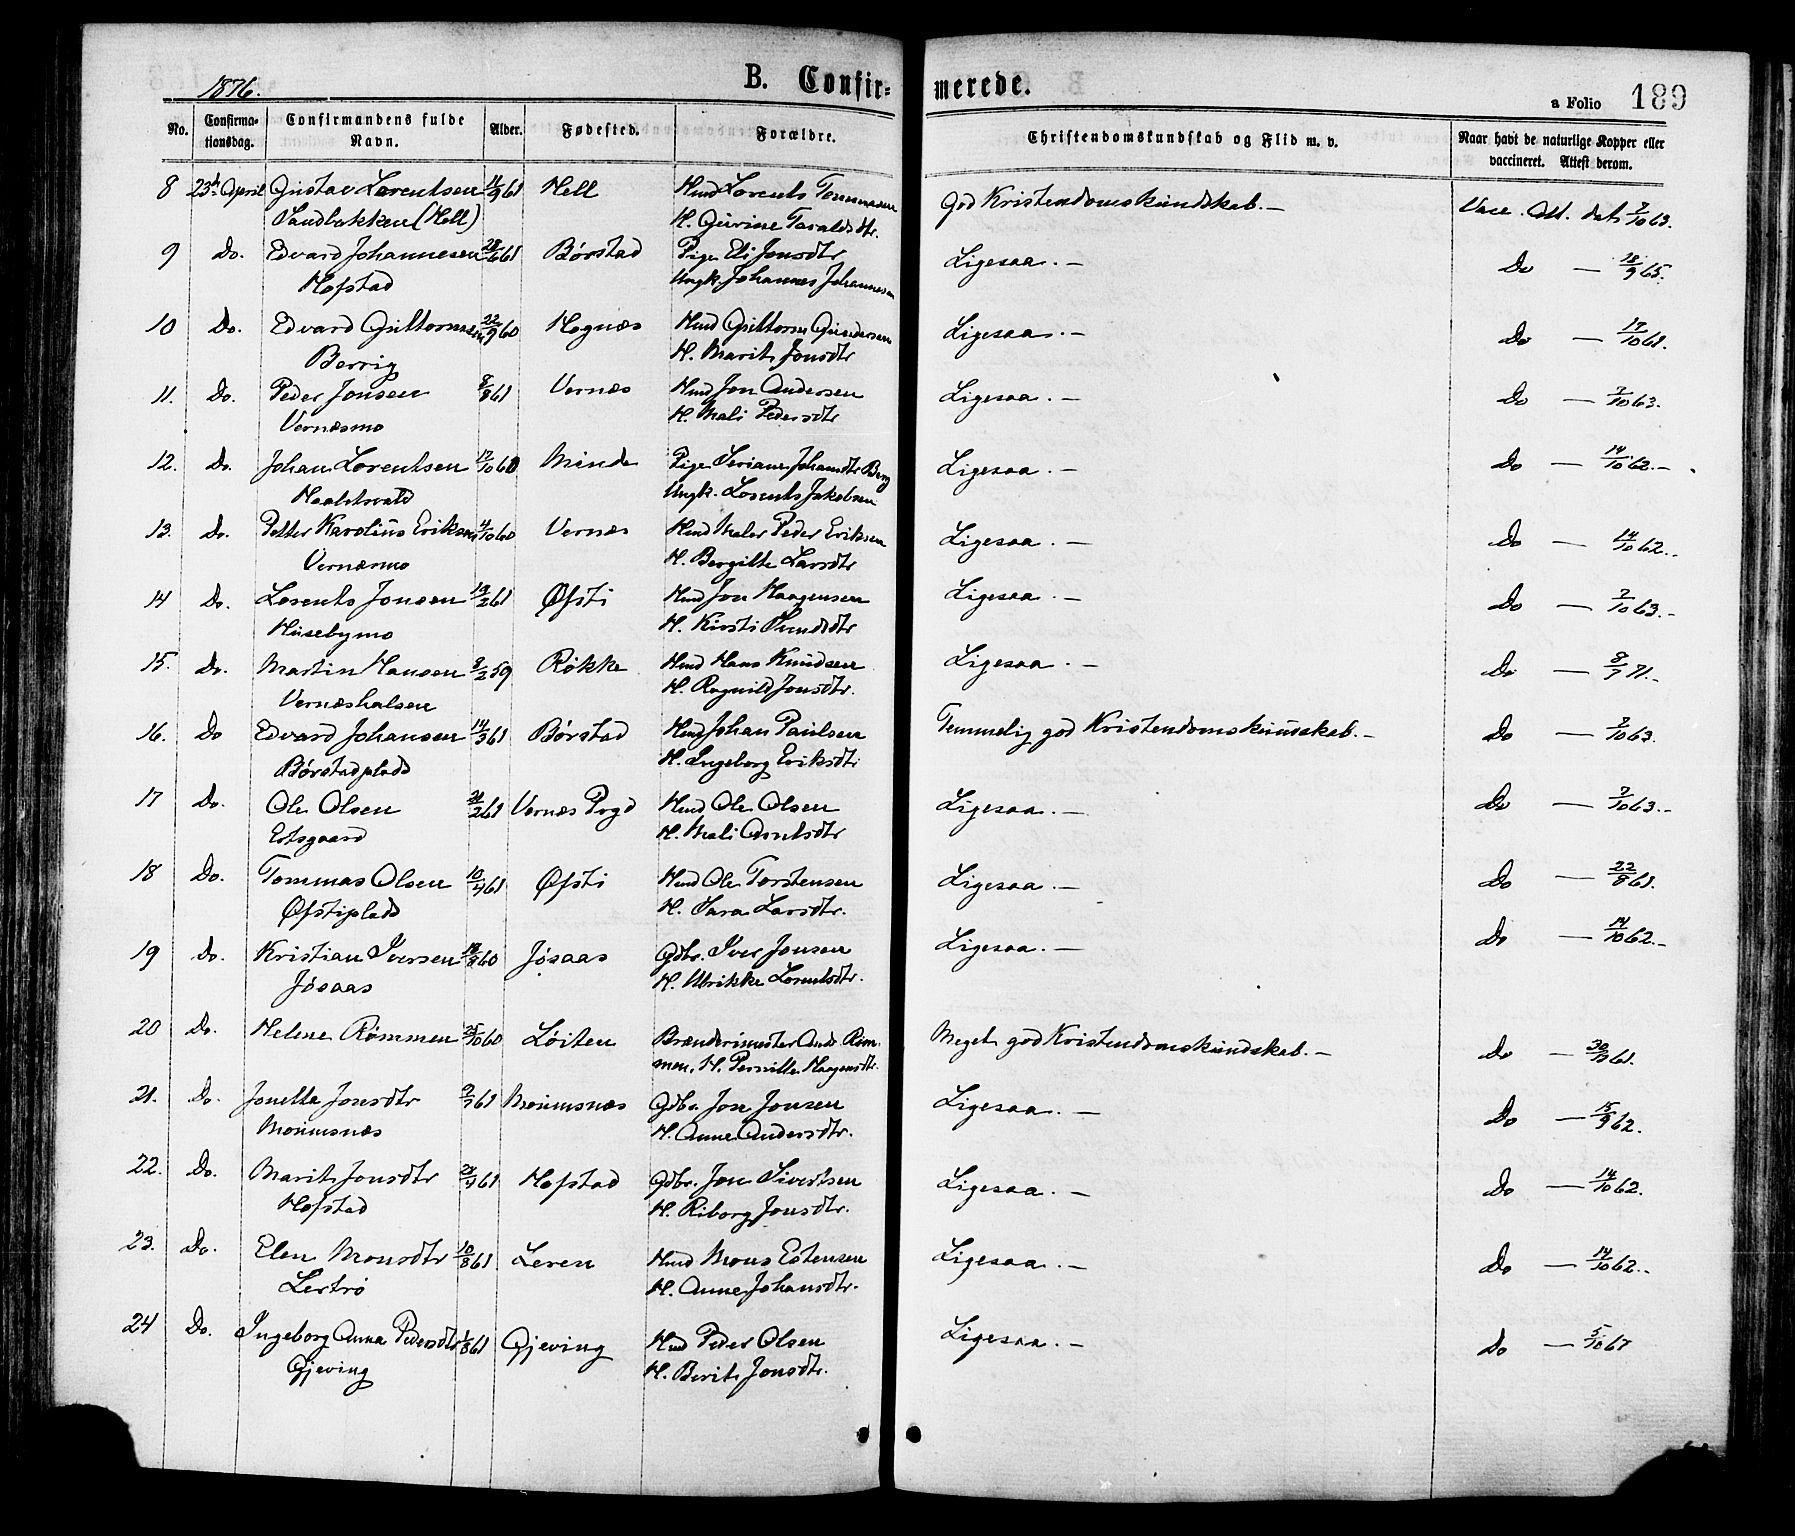 1876.
B. Confir=
merede.
a Folio 189
No.
Confirma-
tionsdag.
Confirmandens fulde
Navn.
Alder.
Fødested.
Forældre.
Christendomskundskab og Flid m. v.
Naar havt de naturlige Kopper eller
vaccineret. Attest derom.
8 23d April Gustav Lorentsen 61 Hell Hmd Lorents Tommasen God Kristendomskundskab. — Vacc. Att. dat. 7/10 63.
Sandbakken (Hell) H. Gurine Taraldsdtr.
9 Do. Edvard Johannesen 28/6 61 Børstad Pige Eli Jonsdtr Ligesaa. — Do — 18/9 65.
Hofstad Ungk. Johannes Johannesen
10 Do. Edvard Guttormsen 22/9 60 Hognæs Hmd Guttorm Gundersen Ligesaa. — Do — 17/10 61.
Berrig H. Marit Jonsdtr
11. Do. Peder Jonsen 8/8 61 Vernæs Hmd Jon Andersen Ligesaa. — Do — 7/10 63.
Vernæsmo H. Mali Pedersdtr
12. Do. Johan Lorentsen 17/10 60 Minde Pige Seriane Johansdtr Berg Ligesaa. — Do — 14/10 62. —
Ungk. Lorents Jakobsen
13. Do. Petter Karolius Eriksen 4/10 60 Vernæs Hmd Maler Peder Eriksen Ligesaa. — Do — 14/10 62..
Vernæsmo H. Bergitte Larsdtr
14 Do. Lorents Jonsen 61 Øfsti Hmd Jon Haagensen Ligesaa. — Do — 7/10 63. —
Husebymo H. Kirsti
15. Do. Martin Hansen 8/2 59 Røkke Hmd Hans Knudsen Ligesaa. — Do — 8/7 71. —
Vernæshalsen H. Ragnild Jonsdtr.
16. Do Edvard Johansen 14/3 61 Børstad Hmd Johan Paulsen Temmelig god Kristendomskundskab. — Do — 7/10 63.
Børstadplads H. Ingeborg Eriksdtr
17 Do. Ole Olsen 61 Vernæs Prgd Hmd Ole Olsen Ligesaa. — Do — 7/10 63. —
Estsgaard H. Mali Arntsdtr
18 Do. Tommas Olsen 10/4 61 Øfsti Hmd Ole Torstensen Ligesaa. — Do — 22/8 61.
Øfstiplads H. Sara Larsdtr.
19 Do. Kristian Iversen 60 Jøsaas Gdbr. Iver Jonsen Ligesaa. — Do — 14/10 62. —
Jøsaas H. Ulrikke Lorentsdtr.
20 Do. Helene Rømmen 25/10 60 Løiten Brænderimester And. Røm- Meget god Kristendomskundskab. — Do — 61.
men, H. Pernille Haagensdtr.
21. Do. Jonetta Jonsdtr 61 Moumsnæs Gdbr. Jon Jonsen Ligesaa. — Do — 15/9 62.
Moumsnæs H. Anne Andersdtr.
22. Do. Marit Jonsdtr 61 Hofstad Gdbr. Jon Sivertsen Ligesaa. — Do — 14/10 62.
Hofstad H. Riborg Jonsdtr.
23. Do. Elen Monsdtr 10/8 61 Leren Hmd Mons Estensen Ligesaa. — Do — 14/10 62..
Lertrø H. Anne Johansdtr.
24 Do. Ingeborg Anna Pedersdtr 1/8 61 Gjeving Hmd Peder Olsen Ligesaa. — Do — 5/10 67
Gjeving H. Berit Jonsdtr.